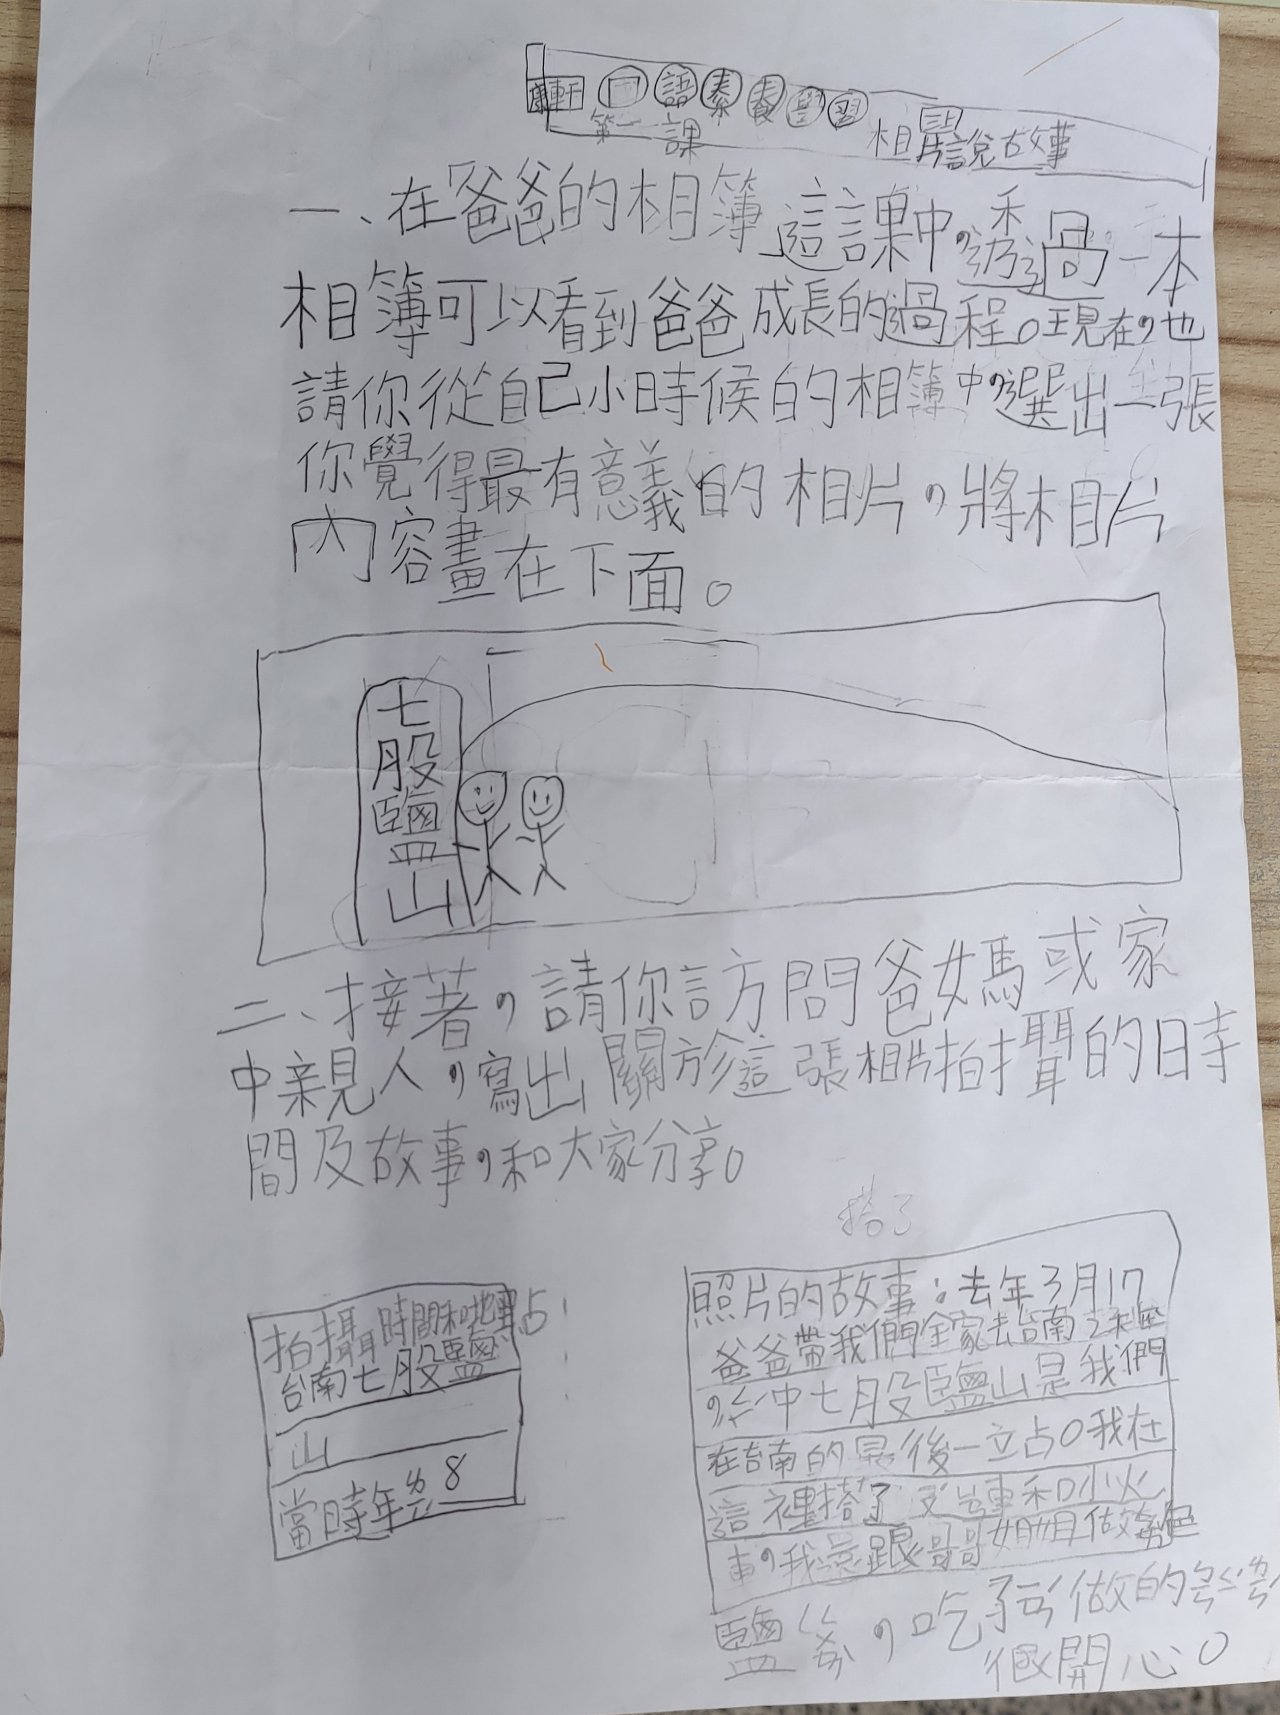 康軒 國語素養學習
第一課 相片說故事
一、在爸爸的相簿這課中,透過一本
相簿可以看到爸爸成長的過程。現在,也
請你從自己小時候的相簿中,選出一張
你覺得最有意義的相片,將相片
內容畫在下面。
七股鹽山
二、接著,請你訪問爸媽或家
中親人,寫出關於這張相片拍攝的時
間及故事,和大家分享。
搭了
拍攝時間和地點
台南七股鹽
山
當時年ㄌㄧㄥˊ8
照片的故事:去年3月17
爸爸帶我們全家去台南
中七股鹽山是我們
在台南的最後一立占。我在
這裡搭了 和小火
車,我還跟哥哥姐姐做
鹽 ,吃 做的
很開心。